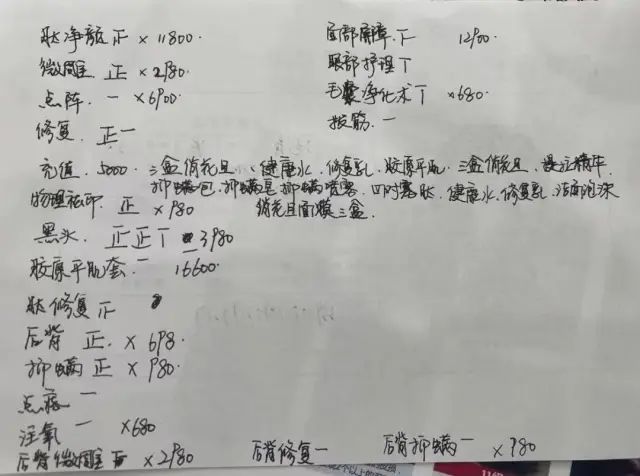 肽净颜 正 × 11800.
面部屏障. 下 12900.
微雕 正 × 2980.
眼部护理 丅
点阵. 一 × 6900.
毛囊净化术 丅 × 680.
修复. 正一
拔筋. 一
充值. 5000. 三盒俏花旦. 健康水. 修复乳. 胶原平肌. 三盒俏花旦.
抑螨包. 抑螨皂 抑螨喷雾. 四时雾肽. 健康水. 修复乳. 洁面泡沫
物理祛印. 正 × 980
俏花旦面膜三盒.
黑头. 正正丅 3980
胶原平肌套. 一 16600.
肽修复 正
后背 正. × 698.
抑螨 正 × 980.
点痣 一
注氧 一 × 680
后背微雕 × 2980
后背修复 一
后背抑螨 一 × 980